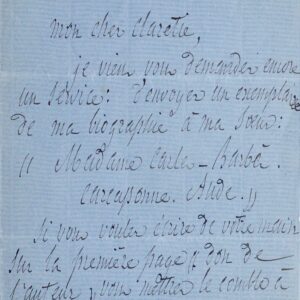 mon cher Claretie,
je viens vous demander encore
un service: d'envoyer un exemplaire
de ma biographie à ma Sœur:
" Madame Carle-Barbé.
Carcassonne. Aude. "
Si vous voulez écrire de votre main
sur la première page " don de
l'auteur " vous mettrez le comble à